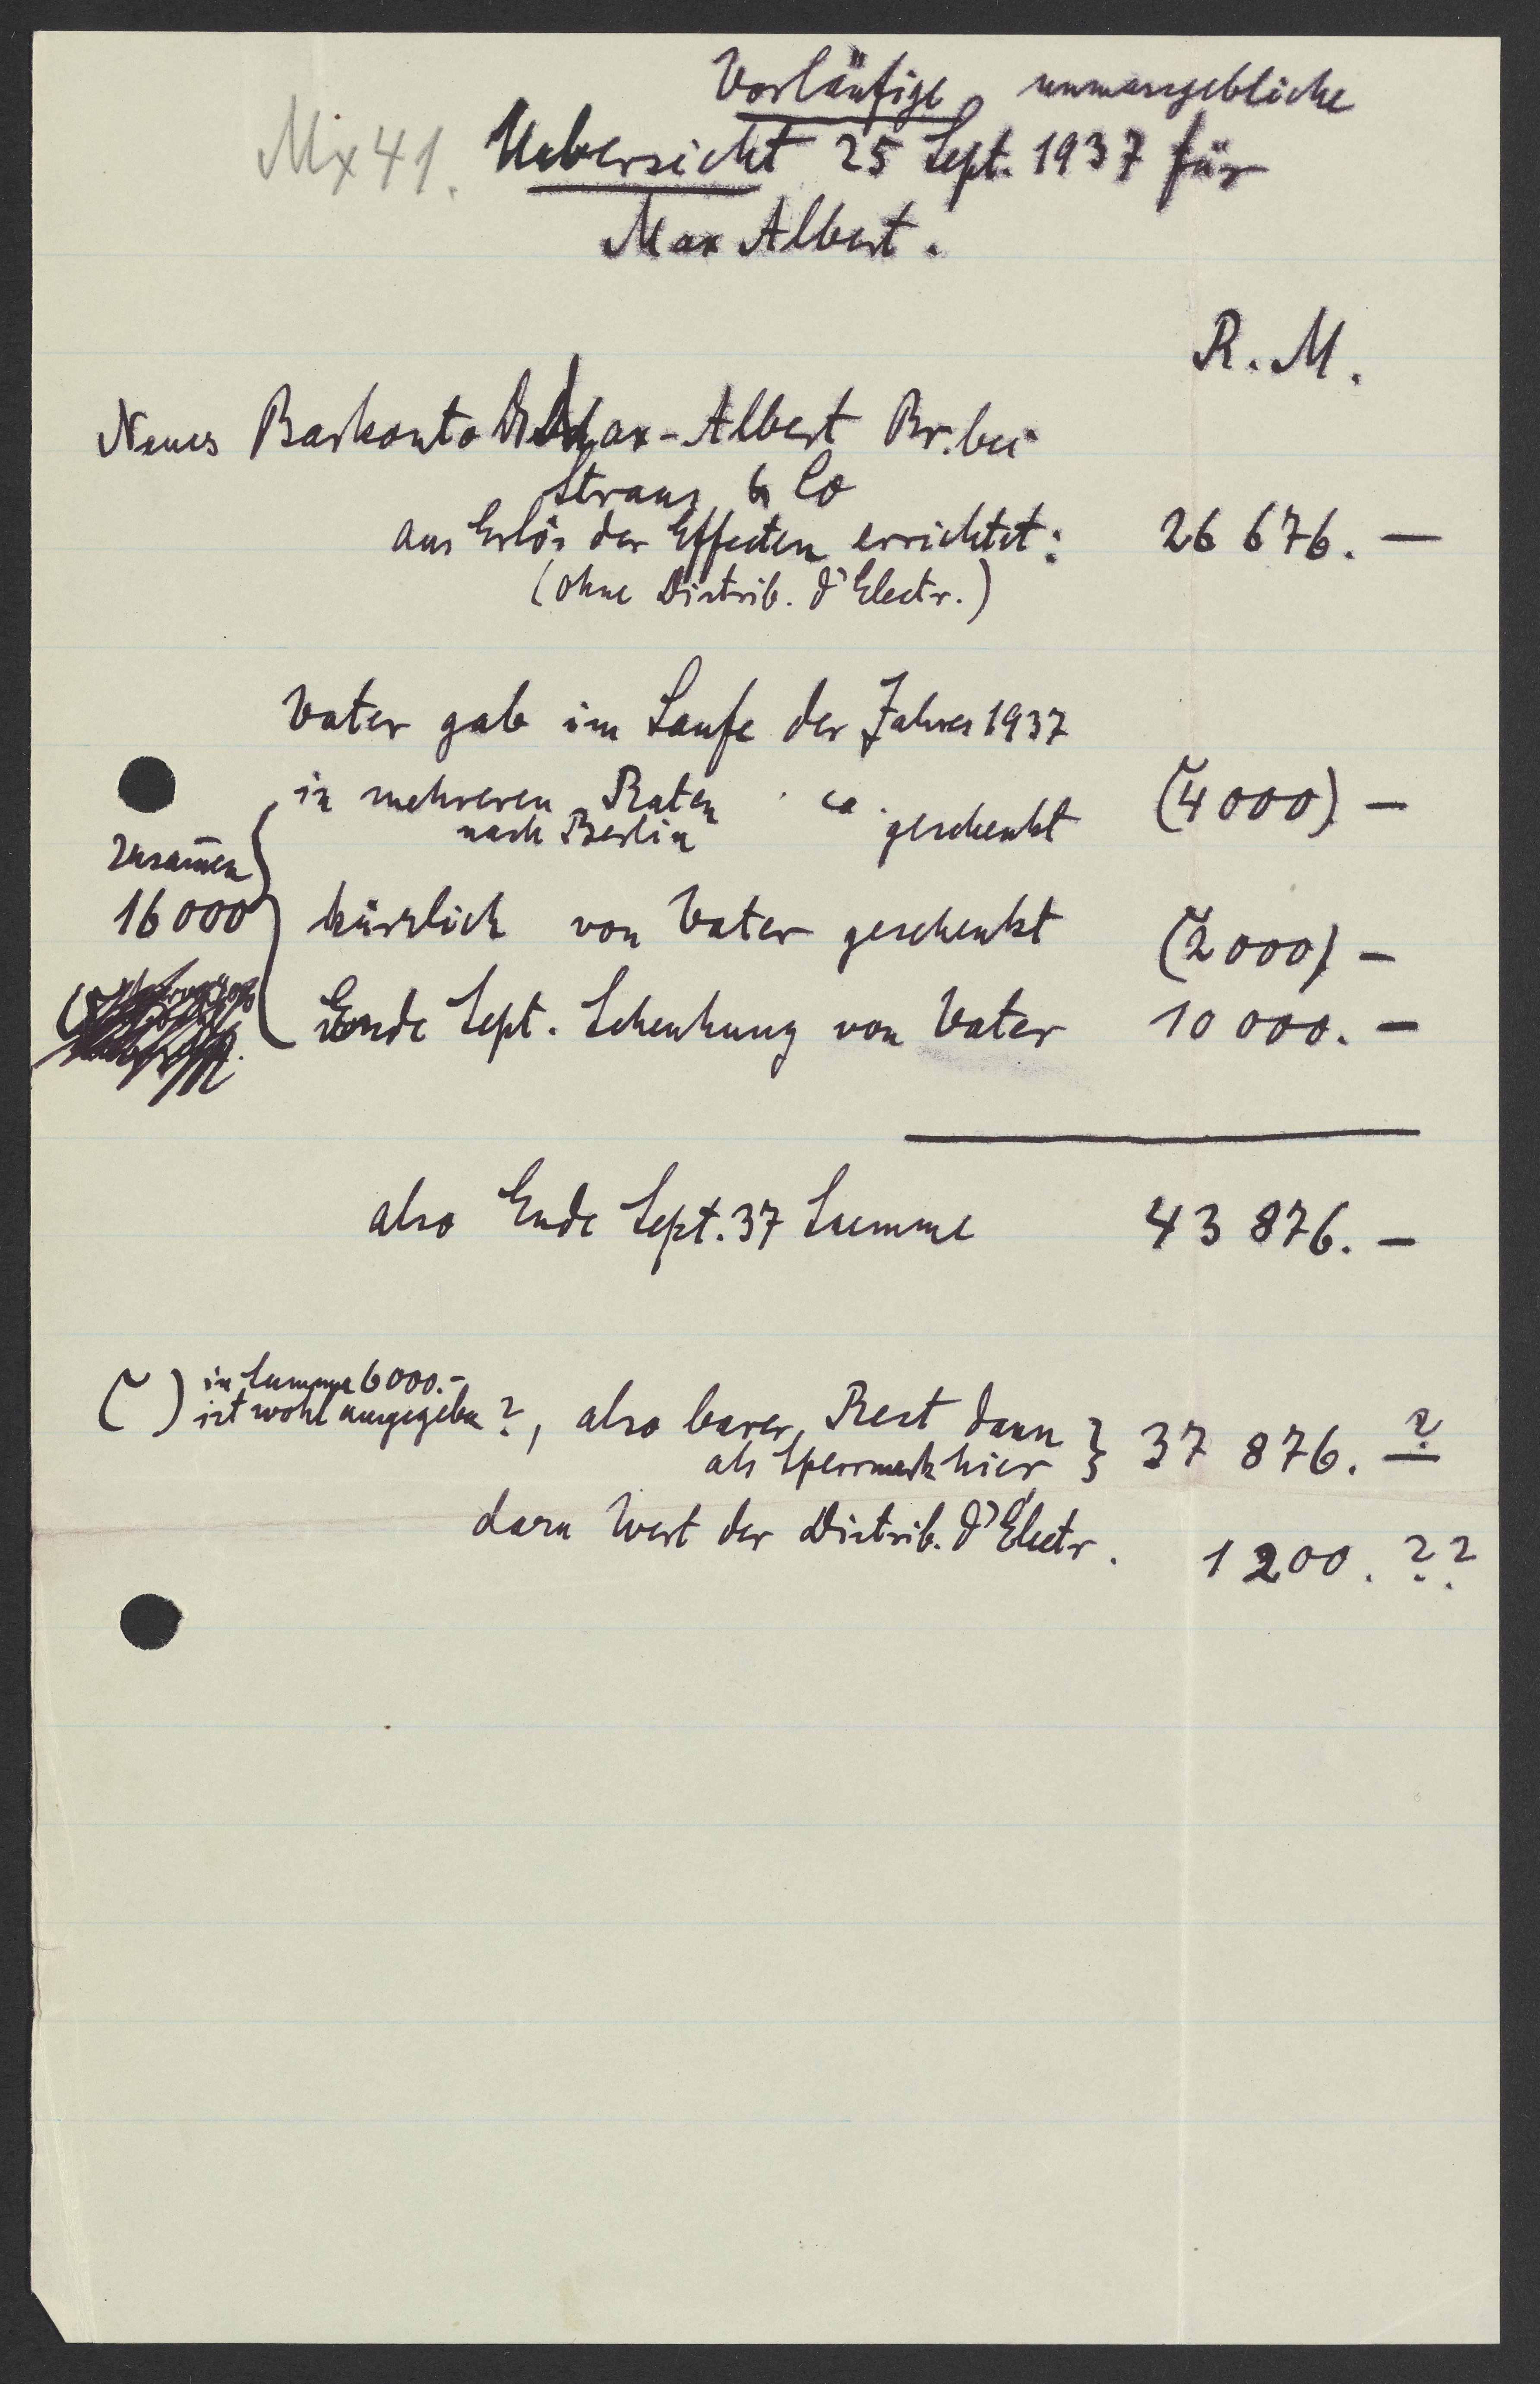 Vorläufige unmassgebliche
Mx 41. Uebersicht 25 Sept. 1937 für
Max Albert.
R. M.
Neues Barkonto Max-Albert Br. bei
Straus & Co
aus Erlös der Effecten errichtet: 26 676. —
(ohne Distrib. d'Electr.)
Vater gab im Laufe des Jahres 1937
in mehreren Raten ca. geschenkt (4 000) —
nach Berlin
zusam̄en
16 000
kürzlich von Vater geschenkt (2 000) —
Ende Sept. Schenkung von Vater 10 000. —
also Ende Sept. 37 Summe 43 876. —
(~) in Summe 6000.-
ist wohl ausgegeben?, also barer Rest dann } 37 876. — ?
als Sperrmark hier
dazu Wert der Distrib. d'Électr. 1 200. ??